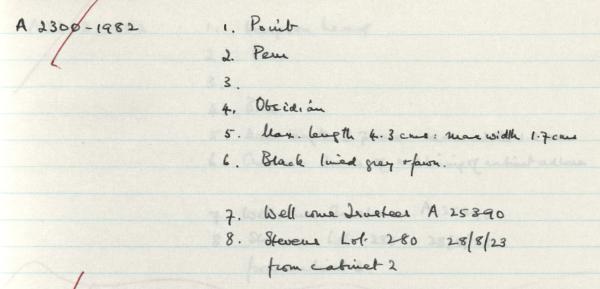 A 2300-1982 1. Point
2. Peru
3.
4. Obsidian
5. Max. length 4.3 cms: max width 1.7 cms
6. Black lined grey + fawn.
7. Wellcome Trustees A 25390
8. Stevens Lot 280 28/8/23
from cabinet 2